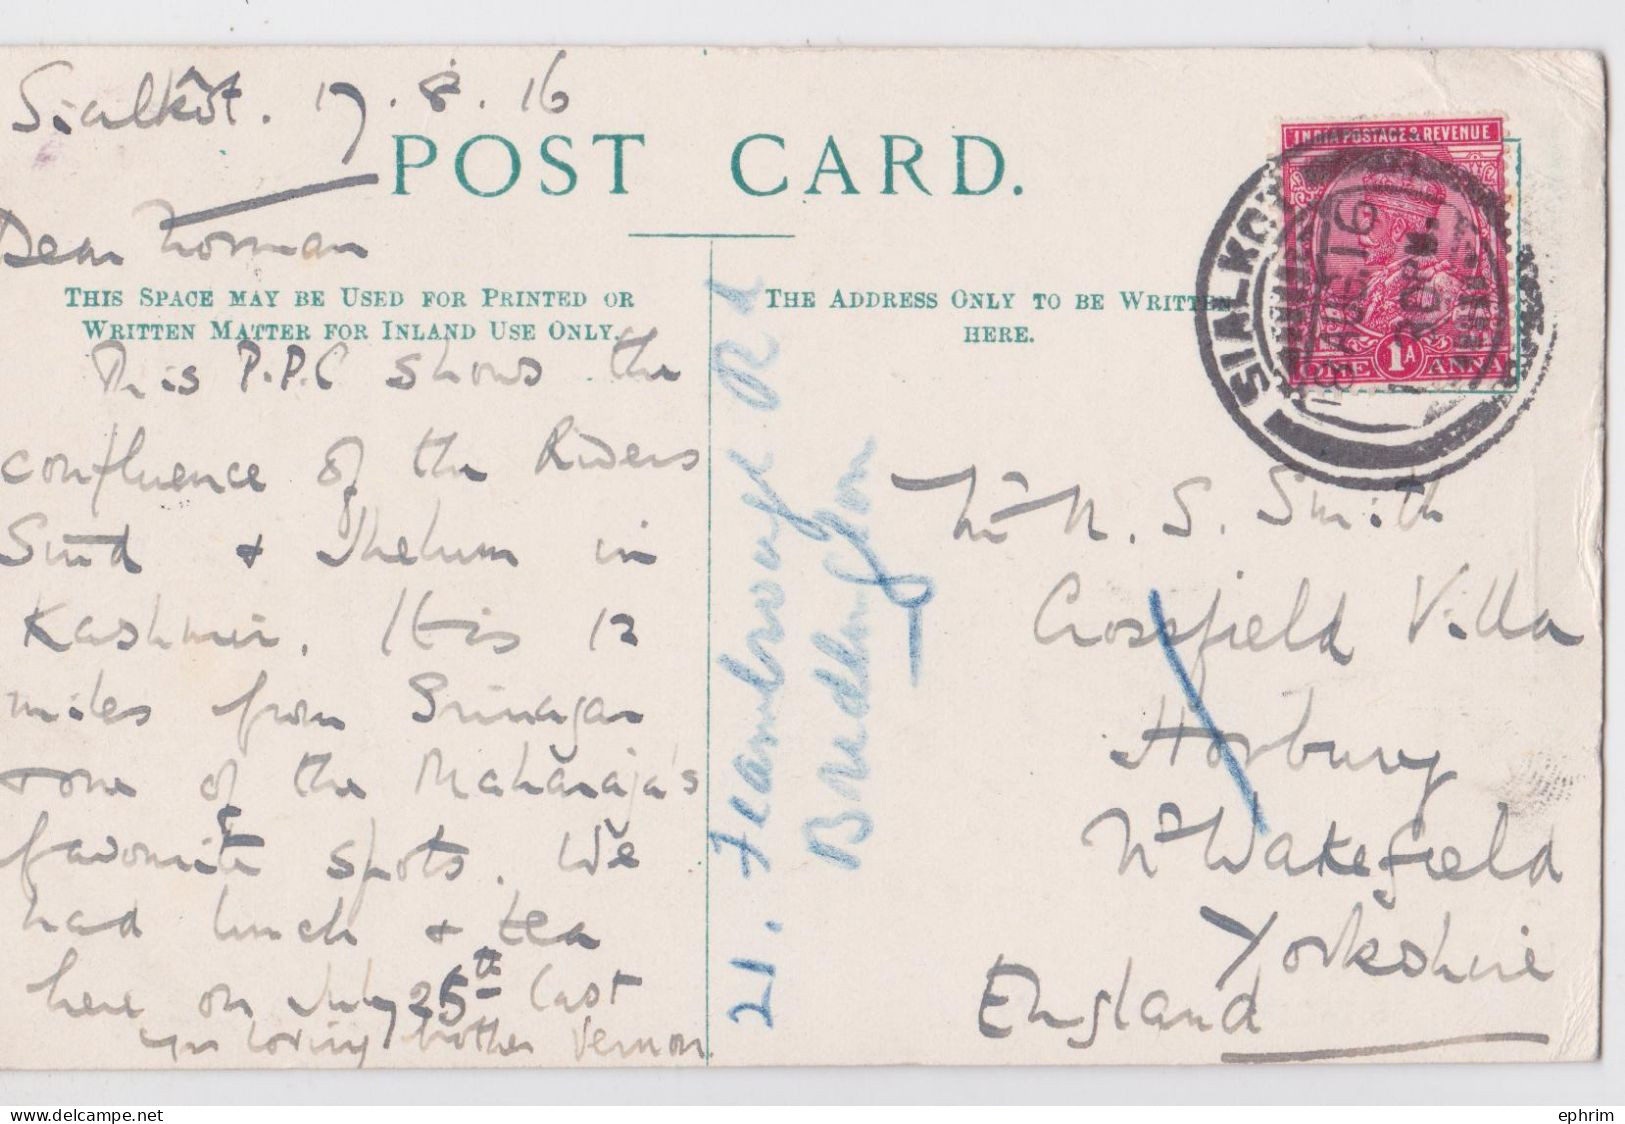 Sialkôt. 17.8.16
POST CARD.
Dear Norman
THIS SPACE MAY BE USED FOR PRINTED OR
WRITTEN MATTER FOR INLAND USE ONLY.
This P.P.C shows the
confluence of the Rivers
Sind & Jhelum in
Kashmir. It is 12
miles from Srinagar
& one of the Maharaja's
favourite spots. We
had lunch & tea
here on July 25th last
Yr loving brother Vernon.
21. Flambrough Rd
Bridlington
THE ADDRESS ONLY TO BE WRITTEN
HERE.
INDIA POSTAGE & REVENUE
ONE 1A ANNA
SIALKOT
18 AUG. 16
Mr N. S. Smith
Crossfield Villa
Horbury
Nr Wakefield
Yorkshire
England
ephrim